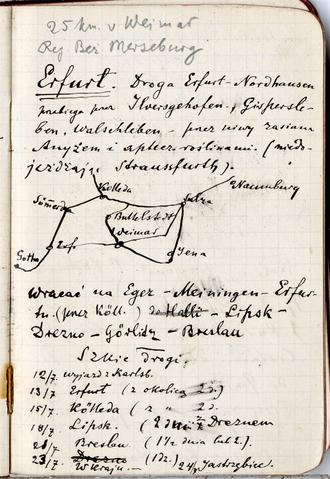 25 km. v Weimar
Reg Bez. Merseburg
Erfurt. Droga Erfurt-Nordhausen
przebiega przez Ilversgehofen, Gispersle-
ben, Walschleben - przez niwy zasiane
Anyżem i aptecz. roślinami. (miejs-
Straussfurth).
Kölleda
Naumburg
Sömerda
Sulza
Buttelstedt
Weimar
Gotha
Erf.
Jena
Wracać na Eger - Meiningen - Erfur-
tu. (przez Köll.) Halli - Lipsk -
Drezno - Görlitz - Breslau
Szkic drogi.
12/7. wyjazd z Karlsb.
13/7 Erfurt (z okolicą 2 d.)
15/7. Kölleda (z " 2 d.
18/7. Lipsk. (2 dni z Dreznem
21/7 Breslau (1½ dnia lub 2.)
23/7 Drezno (1 dz.)
W kraju - 24/7 Jastrzębiec.